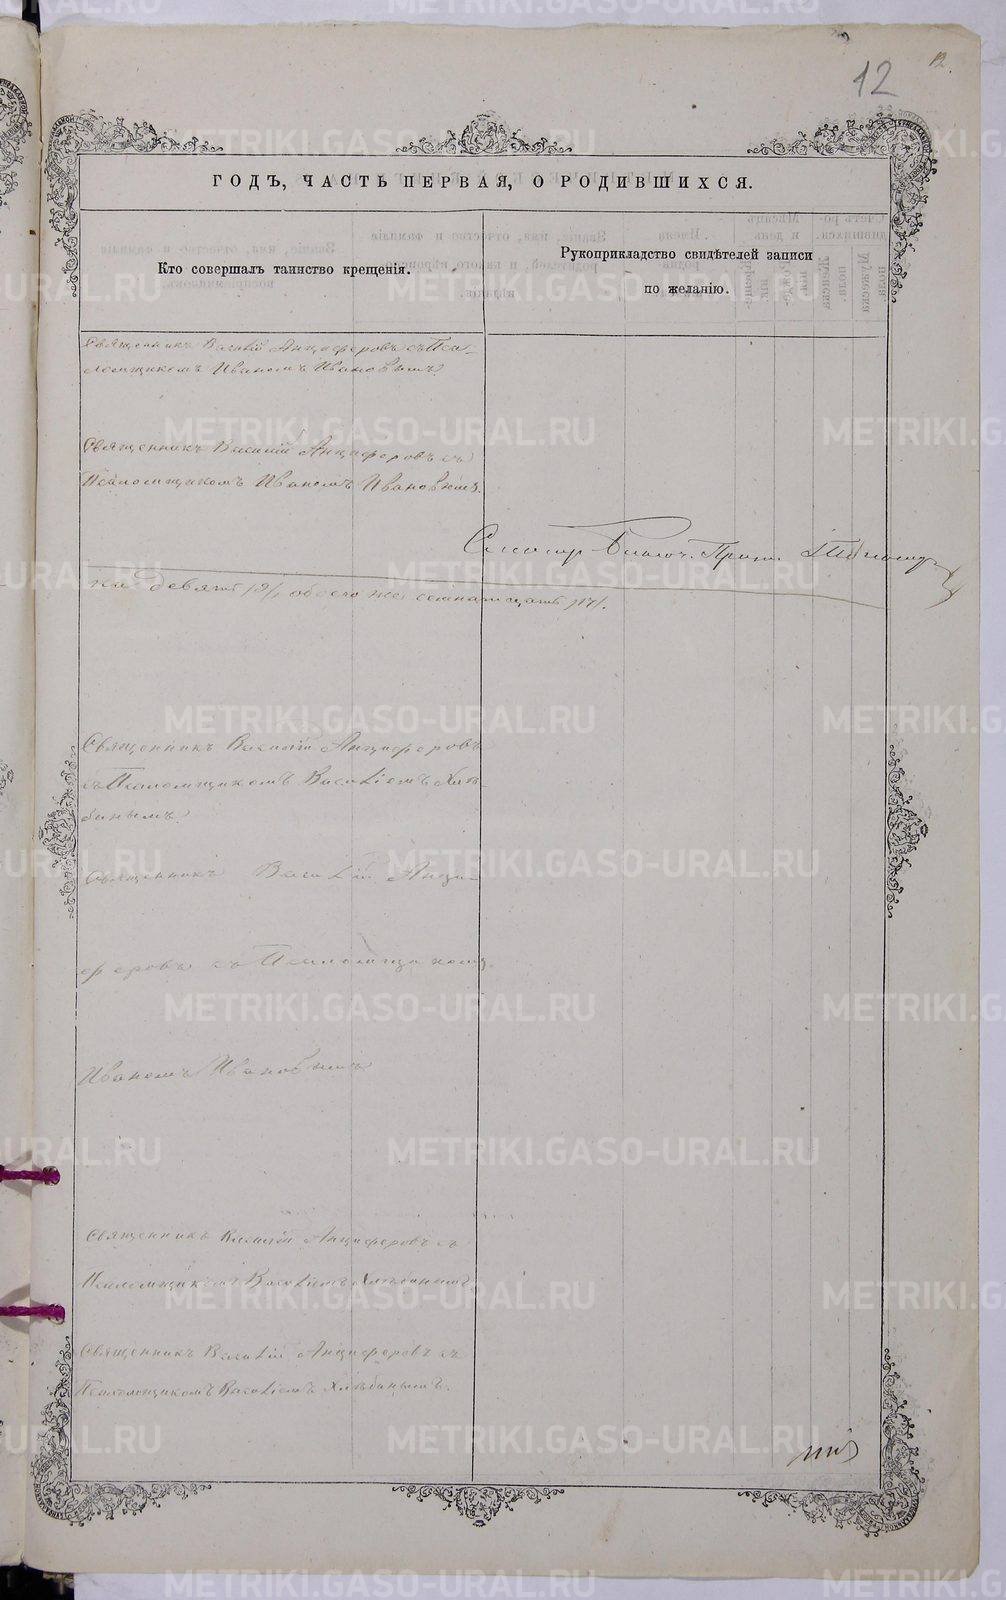 12
12.
ГОДЪ, ЧАСТЬ ПЕРВАЯ, О РОДИВШИХСЯ.
Кто совершалъ таинство крещенія.
Рукоприкладство свидѣтелей записи
по желанію.
Священникъ Василій Анциферовъ съ Пса-
ломщикомъ Иваномъ Ивановымъ.
Священникъ Василій Анциферовъ съ
Псаломщикомъ Иваномъ Ивановымъ.
на девять /9/, обоего же семнадцать /17/.
Священникъ Василій Анциферовъ
съ Псаломщикомъ Василіемъ Хлѣ-
бинымъ.
Священникъ Василій Анци-
феровъ съ Псаломщикомъ
Иваномъ Ивановымъ
Священникъ Василій Анциферовъ съ
Псаломщикомъ Василіемъ Хлѣбинымъ
Священникъ Василій Анциферовъ съ
Псаломщикомъ Василіемъ Хлѣбинымъ.
METRIKI.GASO-URAL.RU